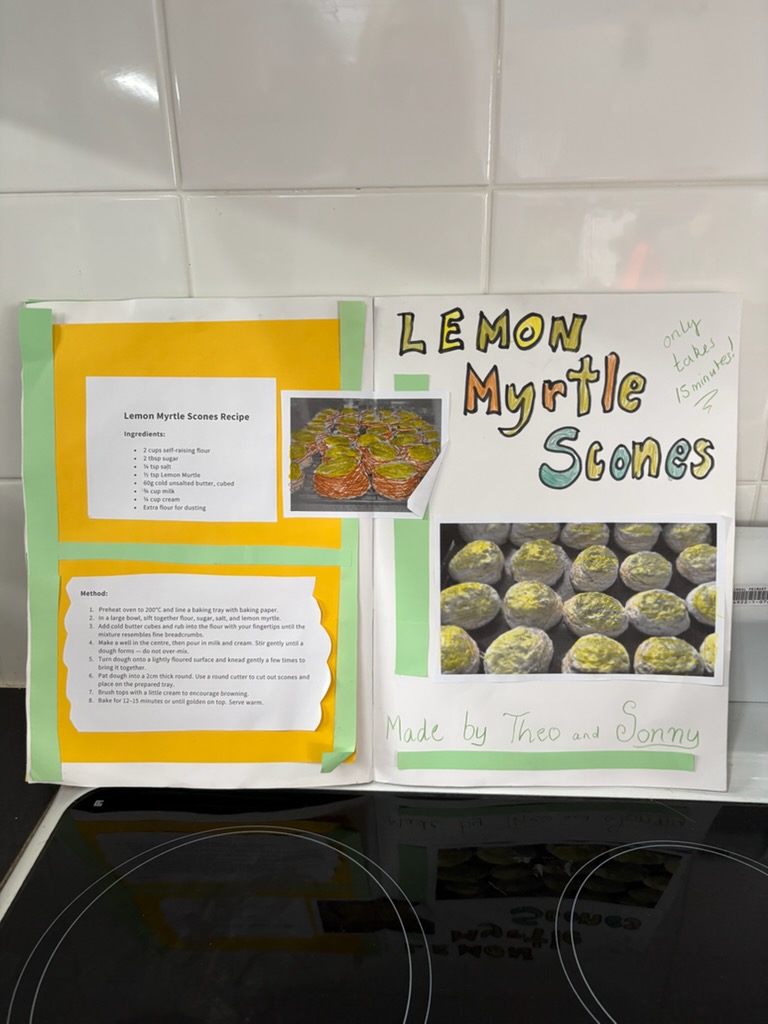 Lemon Myrtle Scones Recipe
Ingredients:
• 2 cups self-raising flour
• 2 tbsp sugar
• ¼ tsp salt
• ½ tsp Lemon Murtle
• 60g cold unsalted butter, cubed
• ¾ cup milk
• ¼ cup cream
• Extra flour for dusting
Method:
1. Preheat oven to 200°C and line a baking tray with baking paper.
2. In a large bowl, sift together flour, sugar, salt, and lemon myrtle.
3. Add cold butter cubes and rub into the flour with your fingertips until the
mixture resembles fine breadcrumbs.
4. Make a well in the centre, then pour in milk and cream. Stir gently until a
dough forms — do not over-mix.
5. Turn dough onto a lightly floured surface and knead gently a few times to
bring it together.
6. Pat dough into a 2cm thick round. Use a round cutter to cut out scones and
place on the prepared tray.
7. Brush tops with a little cream to encourage browning.
8. Bake for 12–15 minutes or until golden on top. Serve warm.
LEMON
Myrtle
Scones
only
takes
15 minutes!
Made by Theo and Sonny